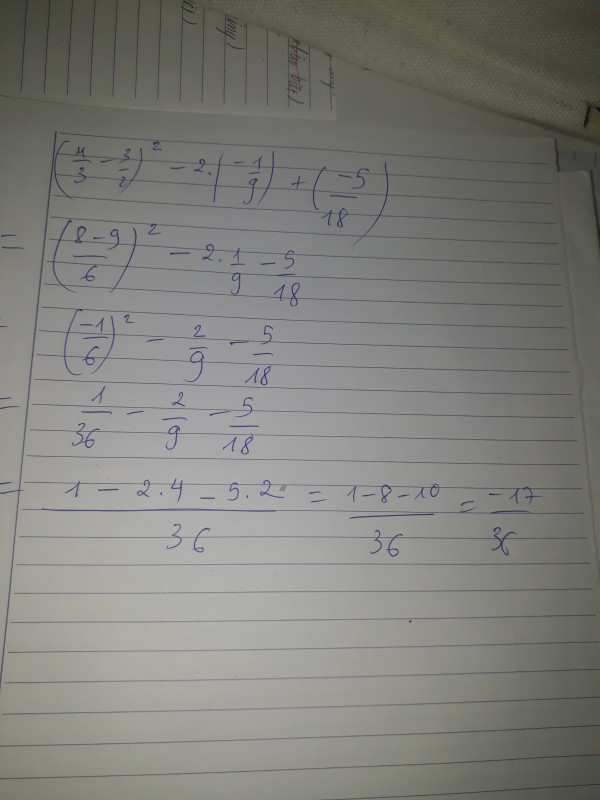 (4/3 - 3/2)² - 2.|-1/9| + (-5/18)
= (8-9/6)² - 2.1/9 - 5/18
(-1/6)² - 2/9 - 5/18
= 1/36 - 2/9 - 5/18
= 1 - 2.4 - 5.2/36 = 1-8-10/36 = -17/36